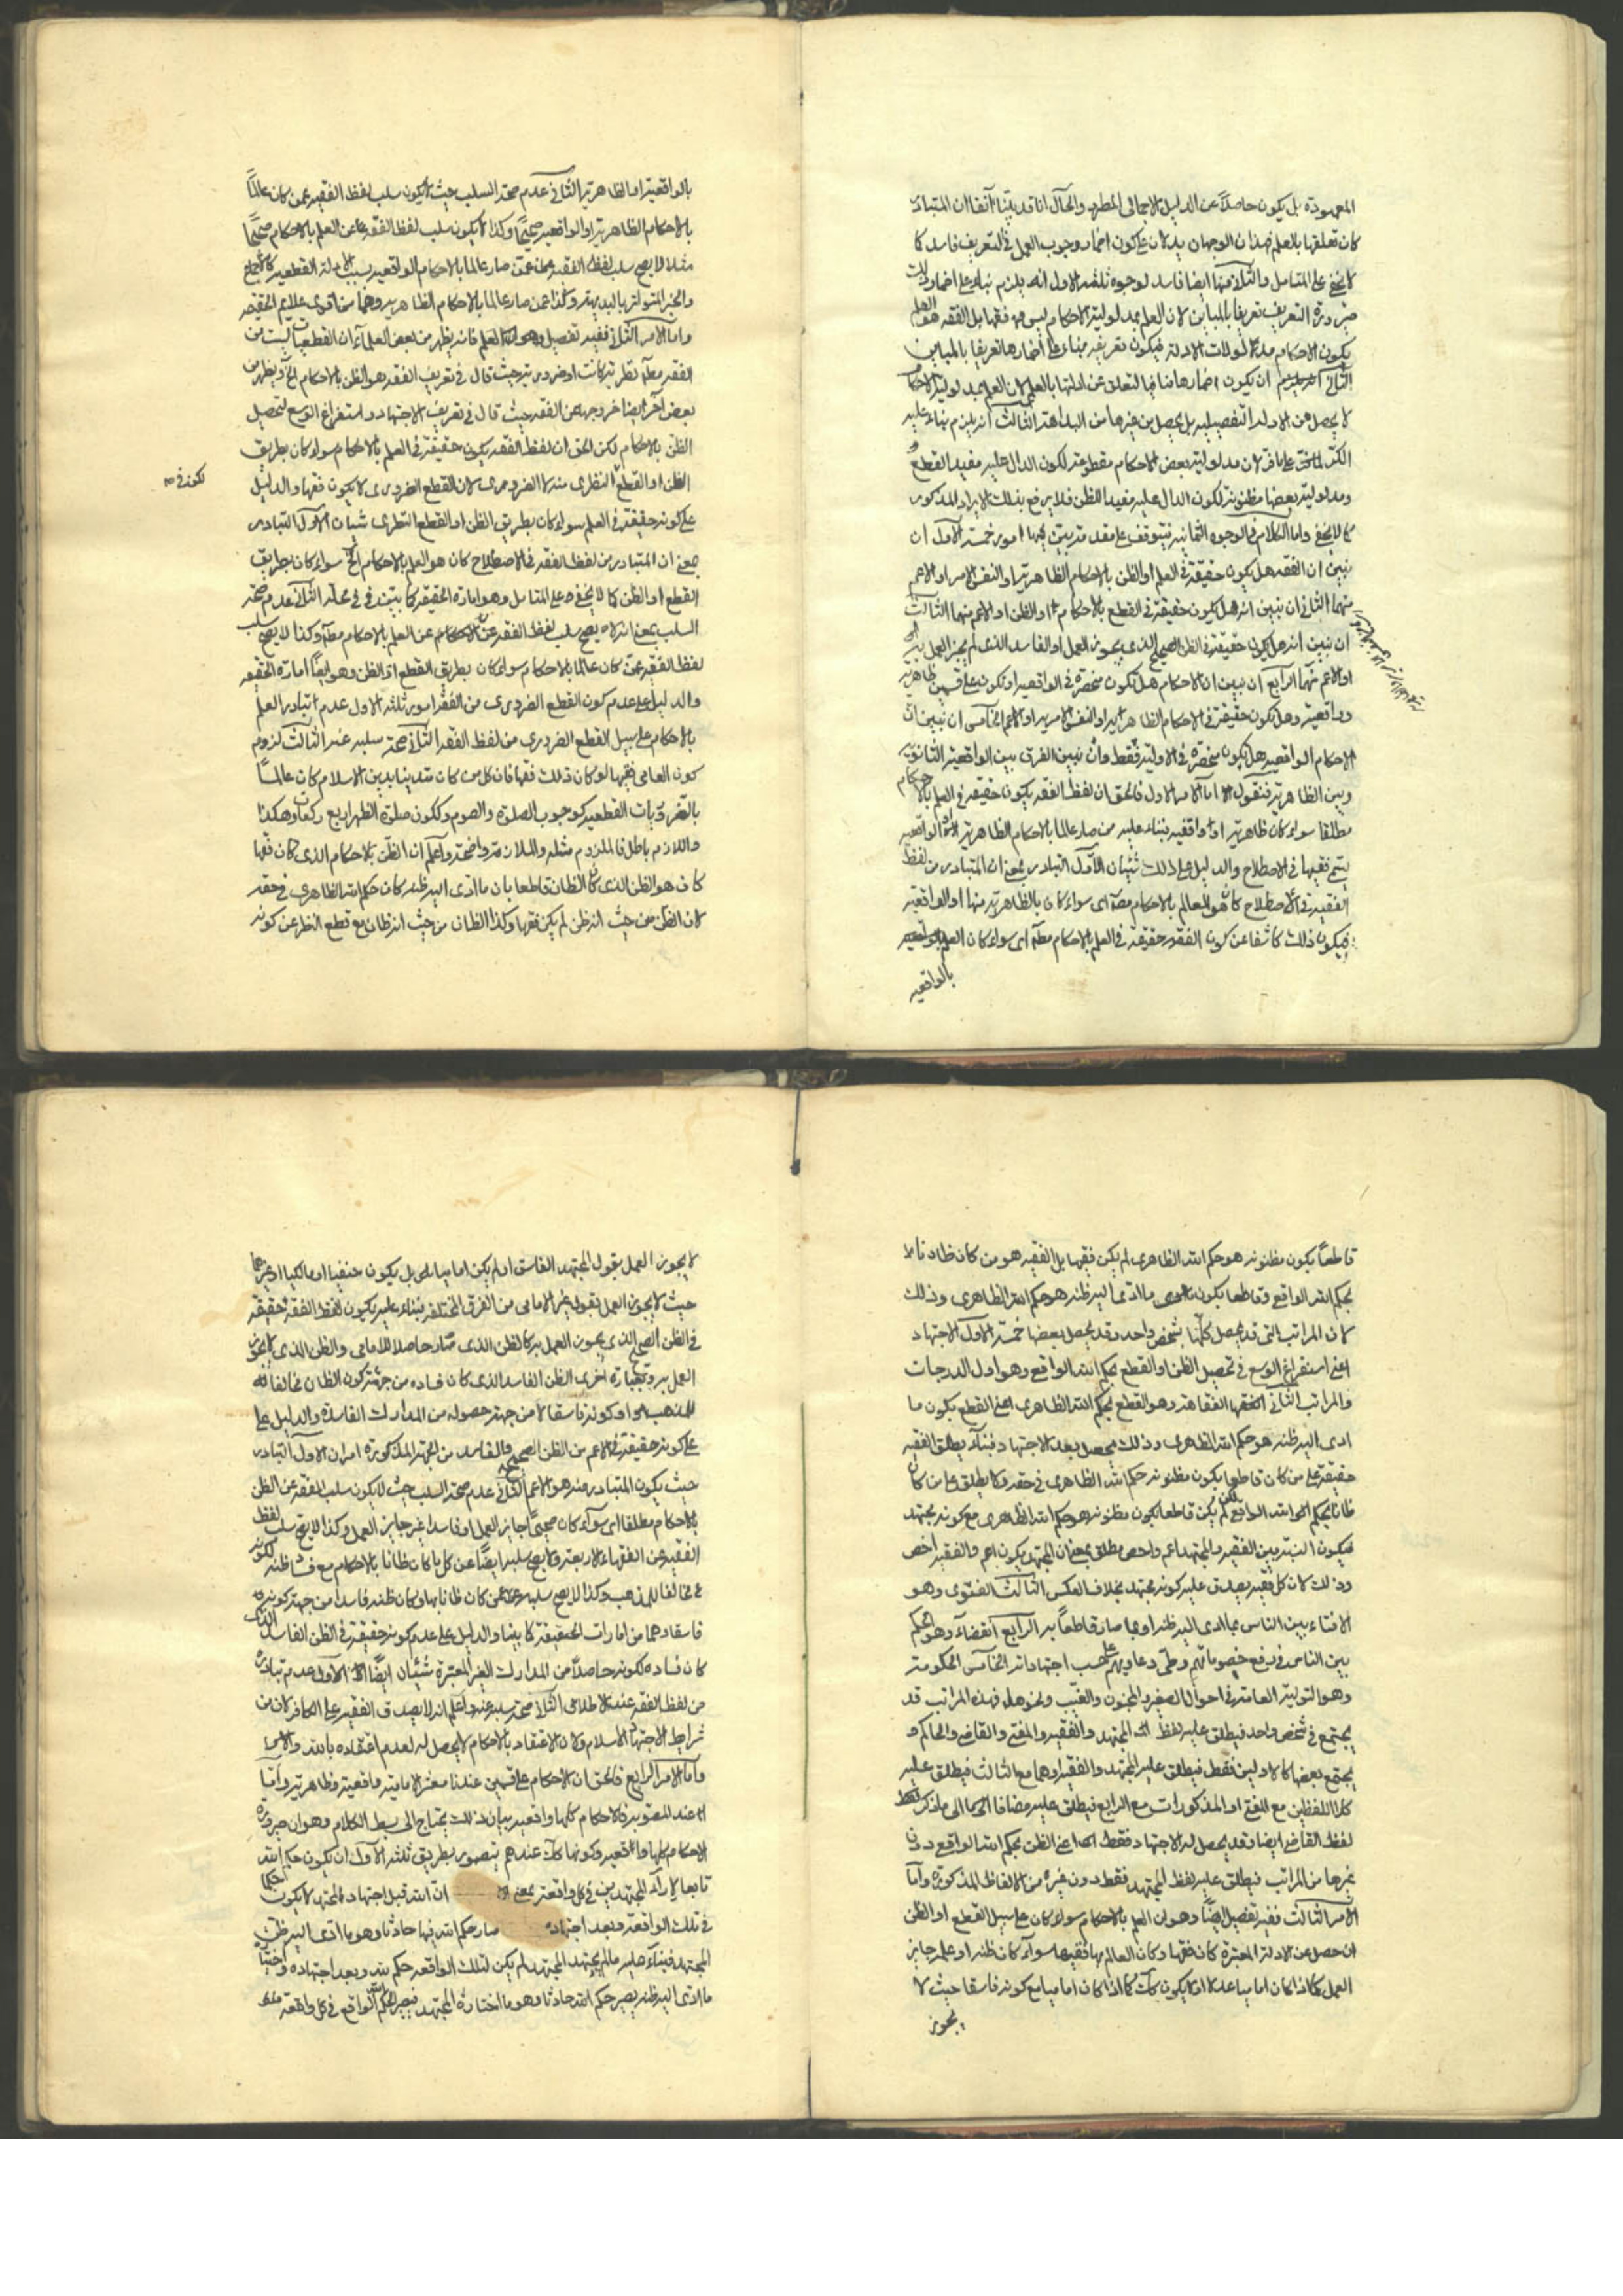 المعهودة بل يكون حاصلاً عن الدليل الاجمالى المطهر والحال انا قد بينا آنفا ان المتبادر
كان تعلقها بالعلم فهذان الوجهان يدلان على كون اضمار وجوب العمل فى التعريف فاسد كما
لا يخفى على المتامل والثلاثة منها ايضا فاسد لوجوه ثلثه الاول انه يلزم بناء على اضمار
صيرورة التعريف تعريفا بالمباين لان العلم بمدلولية الاحكام ليس فقها بل الفقه هو العلم
بكون الاحكام مدلولات الادلة فيكون تعريفه بناء على اضمارها تعريفا بالمباين
الثانى انه يلزم ان يكون اضمارها منافيا لتعلق عن ادلتها بالعلم لان العلم بمدلولية الاحكام
لا يحصل من الادلة التفصيليه بل يحصل من غيرها من البداهة الثالث انه يلزم بناء عليه
لان مدلولية بعض الاحكام مقطوعة لكون الدال عليه مفيد القطع
ومدلولية بعضها مظنونة لكون الدال عليه مفيدا للظن فلا يرفع بذلك الايراد المذكور
كما لا يخفى واما الكلام فى الوجوه الثمانيه فيتوقف على مقدمة يبين فيها امور خمسة الاول ان
نبين ان الفقه هل يكون حقيقة فى العلم او الظن بالاحكام الظاهرية او النفس الامرية او الاعم
منهما الثانى ان نبين انه هل يكون حقيقة فى القطع بالاحكام او الظن او الاعم منهما الثالث
ان نبين انه هل يكون حقيقة فى الظن الصحيح الذى يجوز العمل او الفاسد الذى لم يجز العمل به
او الاعم منهما الرابع ان نبين ان الاحكام هل تكون منحصرة فى الواقعية او تكون على قسمين ظاهرية
وواقعية وهل تكون حقيقة فى الاحكام الظاهرية او النفس الامرية او الاعم الخامس ان نبين ان
الاحكام الواقعية هل تكون منحصرة فى الاولية فقط وان نبين الفرق بين الواقعية الثانوية
وبين الظاهرية فنقول اما الامر الاول فالحق ان لفظ الفقه يكون حقيقة فى العلم بالاحكام
مطلقا سواء كان ظاهرية او واقعية بناء عليه من صار عالما بالاحكام الظاهرية او الواقعية
يسمى فقيها فى الاصطلاح والدليل على ذلك شيئان الاول التبادر بمعنى ان المتبادر من لفظ
الفقيه فى الاصطلاح كان هو العالم بالاحكام مطلقا اى سواء كان بالظاهرية منها او الواقعية
فيكون ذلك كاشفا عن كون الفقه حقيقة فى العلم بالاحكام مطلقا اى سواء كان العلم
بالواقعيه
بالواقعية او الظاهرية الثانى عدم صحة السلب حيث لا يكون سلب لفظ الفقيه عمن كان عالماً
بالاحكام الظاهرية او الواقعية صحيحاً وكذا لا يكون سلب لفظ الفقه عن العلم بالاحكام صحيحاً
مثلا لا يصح سلب لفظ الفقيه عمن صار عالما بالاحكام الواقعيه بسبب الادلة القطعيه كالاجماع
والخبر المتواتر بالبديهة وكذا عمن صار عالما بالاحكام الظاهريه وهما من اقوى علايم الحقيقه
واما الامر الثانى ففيه تفصيل العلم فانه يظهر من بعض العلماء ان القطعيات ليست من
الفقه مطلقا نظرية كانت او ضرورية حيث قال فى تعريف الفقه هو الظن بالاحكام الخ ويظهر من
بعض آخر ايضا خروجها عن الفقه حيث قال فى تعريف الاجتهاد واستفراغ الوسع لتحصيل
الظن بالاحكام لكن الحق ان لفظ الفقه يكون حقيقة فى العلم بالاحكام سواء كان بطريق
الظن او القطع النظرى منه لا الضرورى لان القطع الضرورى لا يكون فقها والدليل
على كونه حقيقة فى العلم سواء كان بطريق الظن او القطع النظرى شيئان الاول التبادر
بمعنى ان المتبادر من لفظ الفقه فى الاصطلاح كان هو العلم بالاحكام الخ سواء كان بطريق
القطع او الظن كما لا يخفى على المتامل وهو امارة الحقيقة كما بين فى محله الثانى عدم صحة
السلب بمعنى انه لا يصح سلب لفظ الفقه عن العلم بالاحكام مطلقا وكذا لا يصح سلب
لفظ الفقيه عمن كان عالما بالاحكام سواء كان بطريق القطع او الظن وهو ايضاً امارة الحقيقه
والدليل على عدم كون القطع الضرورى من الفقه امور ثلثه الاول عدم تبادر العلم
بالاحكام على سبيل القطع الضرورى من لفظ الفقه الثانى صحة سلبه عنه الثالث لزوم
كون العامى فقيها لو كان ذلك فقها فان كل من كان متدينا بدين الاسلام كان عالماً
بالضروريات القطعيه كوجوب الصلوة والصوم وككون صلوة الظهر اربع ركعات وهكذا
واللازم باطل فالملزوم مثله والملازمة واضحة واعلم ان الظن بالاحكام الذى كان فقها
كان هو الظن الذى كان الظان قاطعا بان ما ادى اليه ظنه كان حكم الله الظاهرى فى حقه
لان الظن من حيث انه ظن لم يكن فقها وكذا الظان من حيث انه ظان مع قطع النظر عن كونه
قاطعاً بكون مظنونه هو حكم الله الظاهرى لم يكن فقيها بل الفقيه هو من كان ظانا
بحكم الله الواقعى وقاطعا بكون ما ادى اليه ظنه هو حكم الله الظاهرى وذلك
لان المراتب التى قد يحصل كلها بشخص واحد وقد يحصل بعضها خمسة الاول الاجتهاد
اعنى استفراغ الوسع فى تحصيل الظن او القطع بحكم الله الواقعى وهو اول الدرجات
والمراتب الثانى الفقاهة وهو القطع بحكم الله الظاهرى اعنى القطع بكون ما
ادى اليه ظنه هو حكم الله الظاهرى وذلك يحصل بعد الاجتهاد فبناء يطلق الفقيه
حقيقة على من كان قاطعا بكون مظنونه حكم الله الظاهرى فى حقه ولا يطلق على من كان
ظانا بحكم الله الواقعى لم يكن قاطعا بكون مظنونه هو حكم الله الظاهرى مع كونه مجتهد
فيكون النسبة بين الفقيه والمجتهد اعم واخص مطلق بمعنى ان المجتهد يكون اعم والفقيه اخص
وذلك لان كل فقيه يصدق عليه كونه مجتهد بخلاف العكس الثالث الفتوى وهو
الافتاء بين الناس بما ادى اليه ظنه او بما صار قاطعاً به الرابع القضاء وهو الحكم
بين الناس فى رفع خصوماتهم وطى دعاويهم على حسب اجتهاداته الخامس الحكومة
وهو التولية العامة فى احوال الصغير والمجنون والغيب ونحوها فهذه المراتب قد
يجتمع فى شخص واحد فيطلق عليه لفظ المجتهد والفقيه والمفتى والقاضى والحاكم و
يجتمع بعضها كالاولين فقط فيطلق عليه المجتهد والفقيه او هما مع الثالث فيطلق عليه
كلا اللفظين مع المفتى او المذكورات مع الرابع فيطلق عليه مضافا الى ما ذكر لفظ
لفظ القاضى ايضا وقد يحصل له الاجتهاد فقط اعنى الظن بحكم الله الواقعى دون
غيرها من المراتب فيطلق عليه لفظ المجتهد فقط دون غيره من الالفاظ المذكورة واما
الامر الثالث ففيه تفصيل ايضاً وهو ان العلم بالاحكام سواء كان على سبيل القطع او الظن
ان حصل عن الادلة المعتبرة كان فقها وكان العالم بها فقيها سواء كان ظنه او علمه جايز
العمل كما اذا كان اماميا عدلا او لا يكون كذلك كما اذا كان اماميا مع كونه فاسقا حيث لا
يجوز
لا يجوز العمل بقول المجتهد الفاسق او لم يكن اماميا بل يكون حنفيا او مالكيا او غيرهما
حيث لا يجوز العمل بقول غير الامامى من الفرق المختلفه بناء عليه يكون لفظ الفقه حقيقة
فى الظن الصحيح الذى يجوز العمل به كالظن الذى صار حاصلا للامامى والظن الذى لا يجوز
العمل به وبعبارة اخرى الظن الفاسد الذى كان فساده من جهة كون الظان مخالفا
للمذهب او كونه فاسقا لا من جهة حصوله من المدارك الفاسدة والدليل على
على كونه حقيقة فى الاعم من الظن الصحيح والفاسد من الجهة المذكورة امران الاول التبادر
حيث يكون المتبادر منه هو الاعم الثانى عدم صحة السلب حيث لا يكون سلب الفقه عن الظن
بالاحكام مطلقا اى سواء كان صحيحاً جايز العمل او فاسدا غير جايز العمل وكذا لا يصح سلب لفظ
الفقيه عن الفقهاء الاربعة ولا يصح سلبه ايضاً عن كل ما كان ظانا بالاحكام مع فساد ظنه لكونه
مخالفا للمذهب وكذا لا يصح سلبه عمن كان ظانا بها وكان ظنه فاسدا من جهة كونه
فاسقا وهما من امارات الحقيقة كما بينا والدليل على عدم كونه حقيقة فى الظن الفاسد الذى
كان فساده لكونه حاصلاً من المدارك الغير المعتبرة شيئان ايضاً الاول عدم تبادره
من لفظ الفقه عند الاطلاق الثانى صحة سلبه عنه واعلم انه لا يصدق الفقيه على الكافر لان من
شرايط الاجتهاد الاسلام ولان الاعتقاد بالاحكام لا يحصل له لعدم اعتقاده بالله
واما الامر الرابع فالحق ان الاحكام على قسمين عندنا معشر الامامية واقعية وظاهرية واما
عند المصوبة فالاحكام كلها واقعيه بيان ذلك يحتاج الى بسط الكلام وهو ان صيرورة
الاحكام كلها واقعية وكونها كذلك عندهم يتصور بطريق ثلثه الاول ان يكون حكم الله
تابعا لاراء المجتهدين فى كل واقعة بمعنى ان الله قبل اجتهاد المجتهد لا يكون
فى تلك الواقعة وبعد اجتهاده صار حكم الله فيها حادثا وهو ما ادى اليه ظن
المجتهد فبناء عليه ما لم يجتهد المجتهد لم يكن لتلك الواقعه حكم لله وبعد اجتهاده
ما ادى اليه ظنه يصير حكم الله حادثا وهو ما اختاره المجتهد فيصير الحكم الواقعى فى كل واقعة